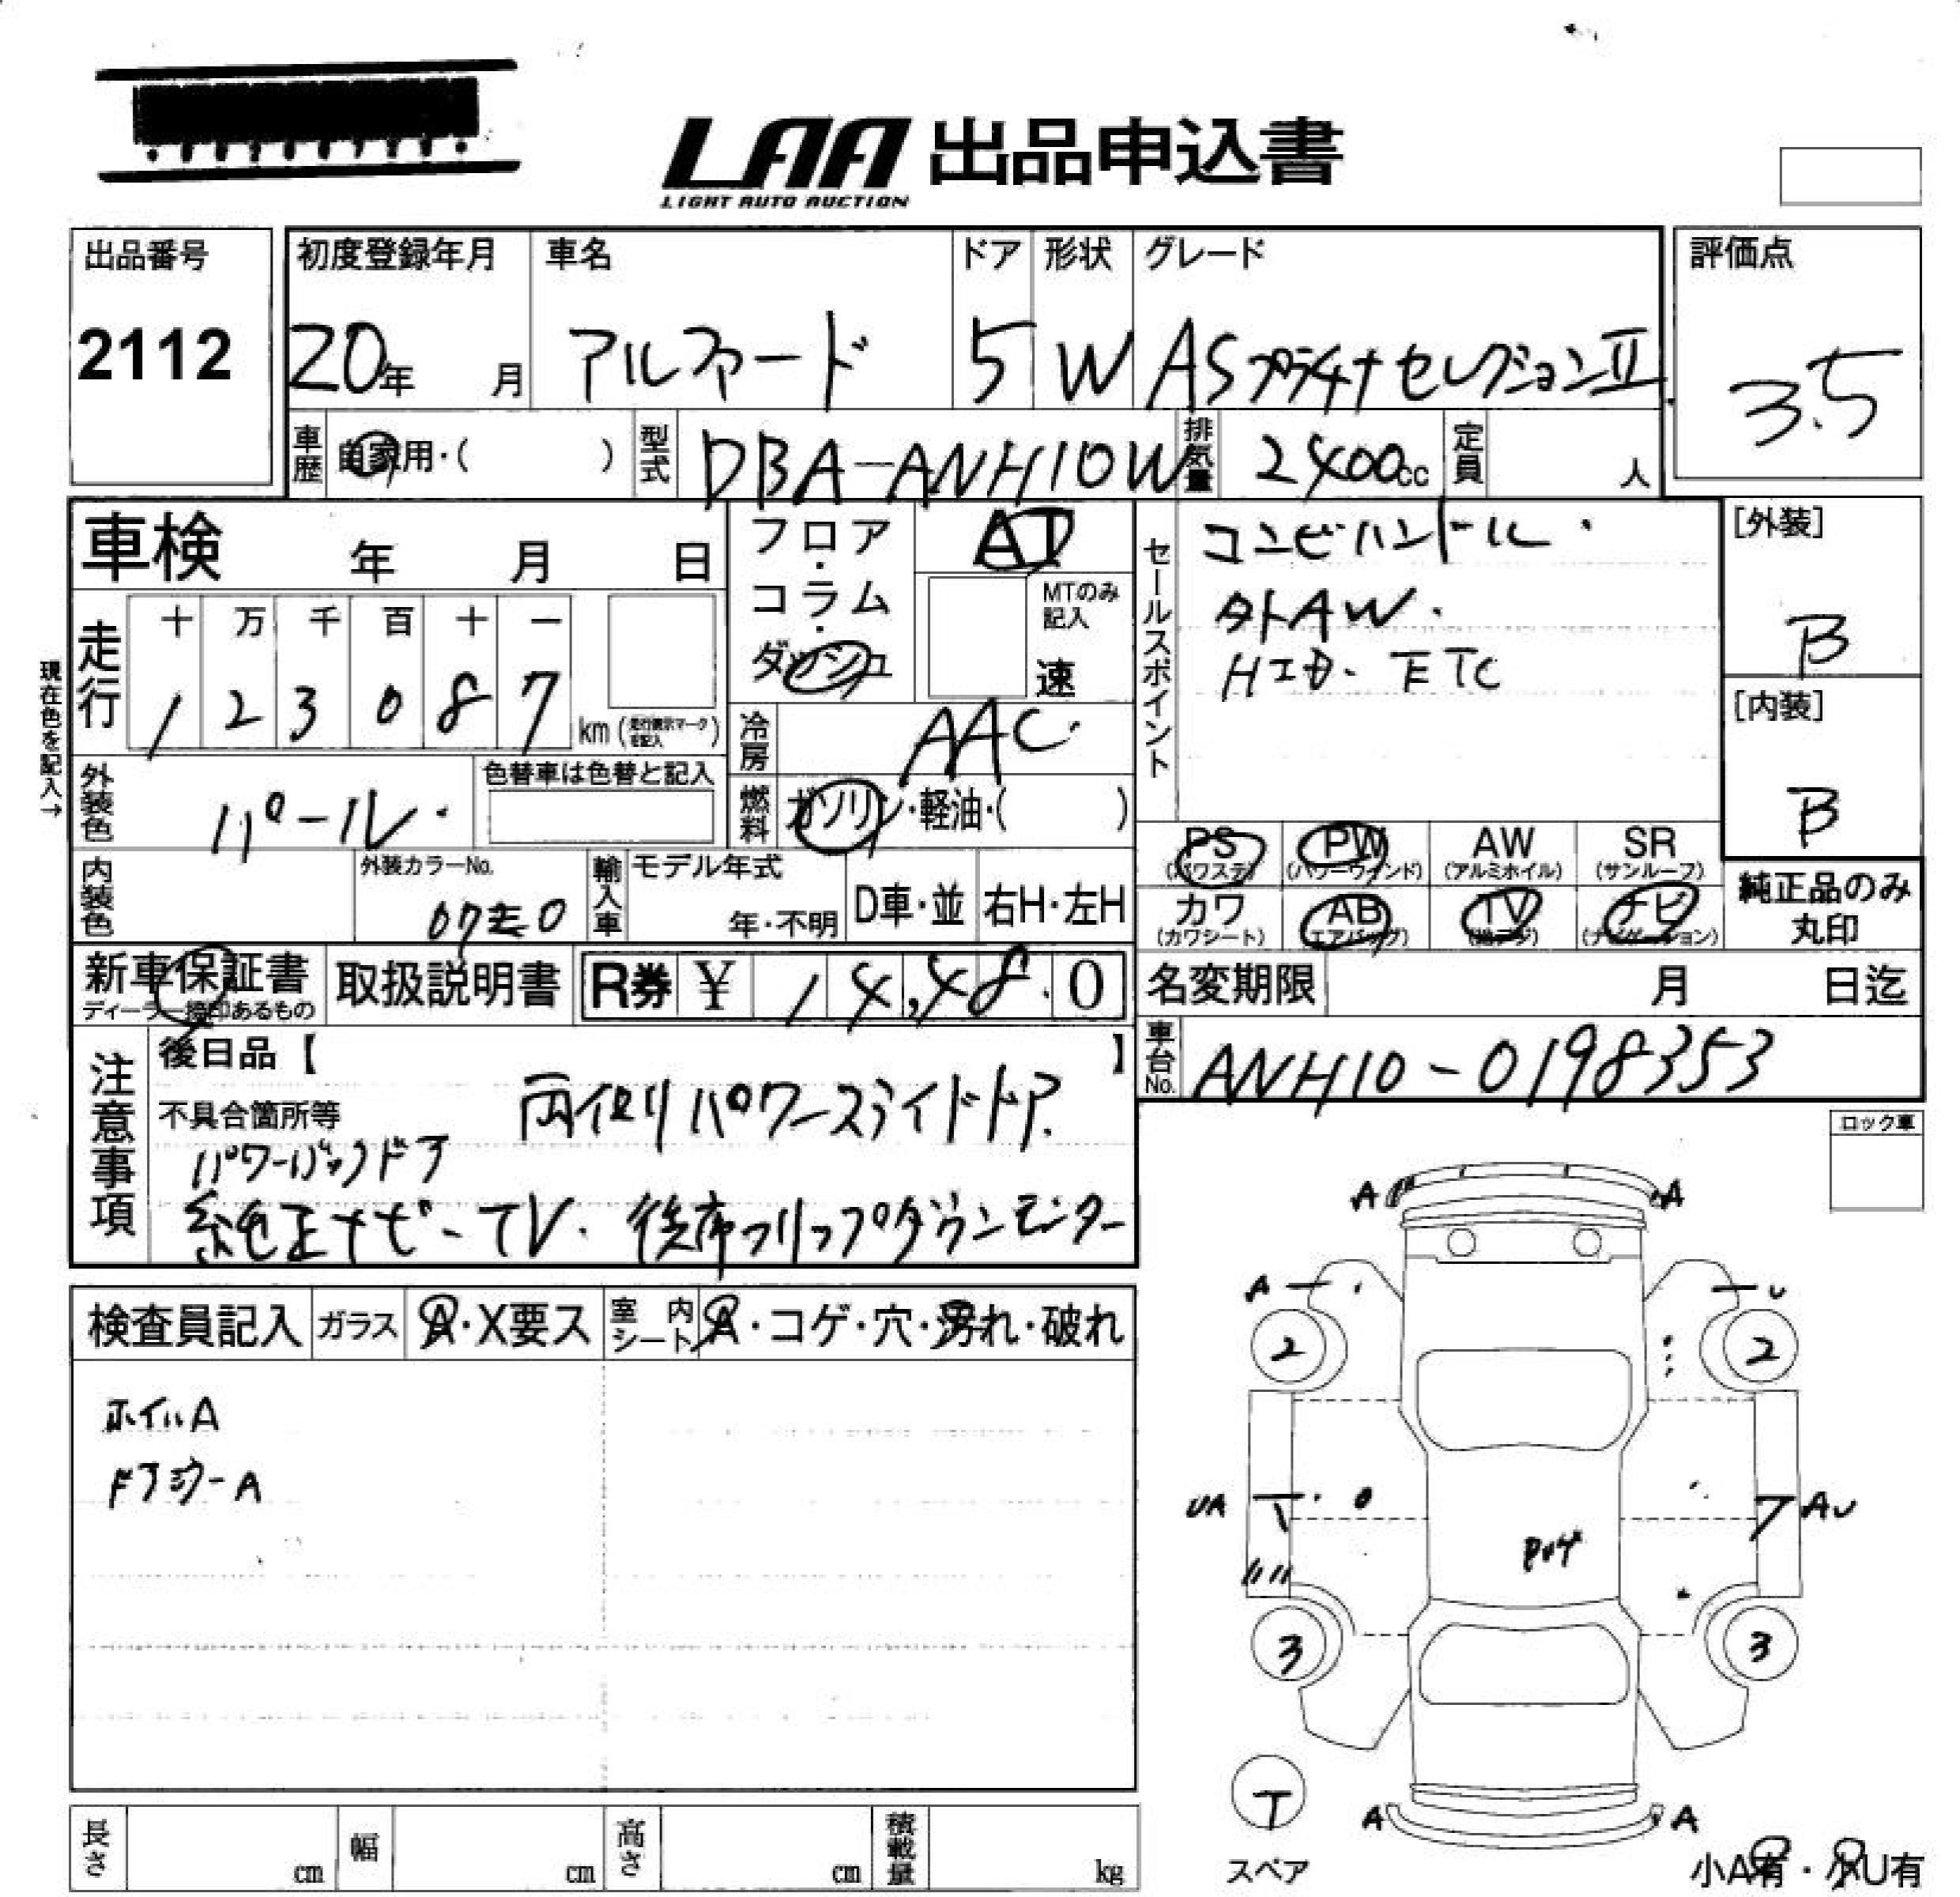 LAA 出品申込書
LIGHT AUTO AUCTION
出品番号
2112
初度登録年月
20年 月
車名
アルファード
ドア
5
形状
W
グレード
ASプラチナセレクションⅡ
評価点
3.5
車歴
自家用・( )
型式
DBA-ANH10W
排気量
2400cc
定員
人
車検 年 月 日
フロア・コラム・ダッシュ
AT
MTのみ記入
速
セールスポイント
コンビハンドル・
外AW・
HID・ETC
[外装]
B
[内装]
B
現在色を記入→
走行
十 万 千 百 十 一
1 2 3 0 8 7
km (走行表示マークを記入)
冷房
AAC
燃料
ガソリン・軽油・( )
外装色
パール
色替車は色替と記入
内装色
外装カラーNo.
輸入車
モデル年式
年・不明
D車・並
右H・左H
PS (パワステ)
PW (パワーウィンド)
AW (アルミホイル)
SR (サンルーフ)
カワ (カワシート)
AB (エアバッグ)
TV (地デジ)
ナビ (ナビゲーション)
純正品のみ丸印
新車保証書
ディーラー捺印あるもの
取扱説明書
R券 ¥ 14,480
名変期限 月 日迄
車台No.
ANH10-0198353
注意事項
後日品【 】
不具合箇所等
両側パワースライドドア
パワーバックドア
純正ナビ-TV・後席フリップダウンモニター
ロック車
検査員記入
ガラス
A・X要ス
室内シート
A・コゲ・穴・汚れ・破れ
ホイルA
ドアミラーA
A A
A U
2 2
UA AU
3 3
T
スペア
A A
小A有・小U有
長さ cm
幅 cm
高さ cm
積載量 kg